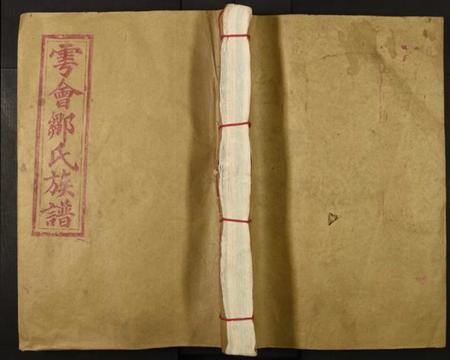 雩會鄒氏族譜